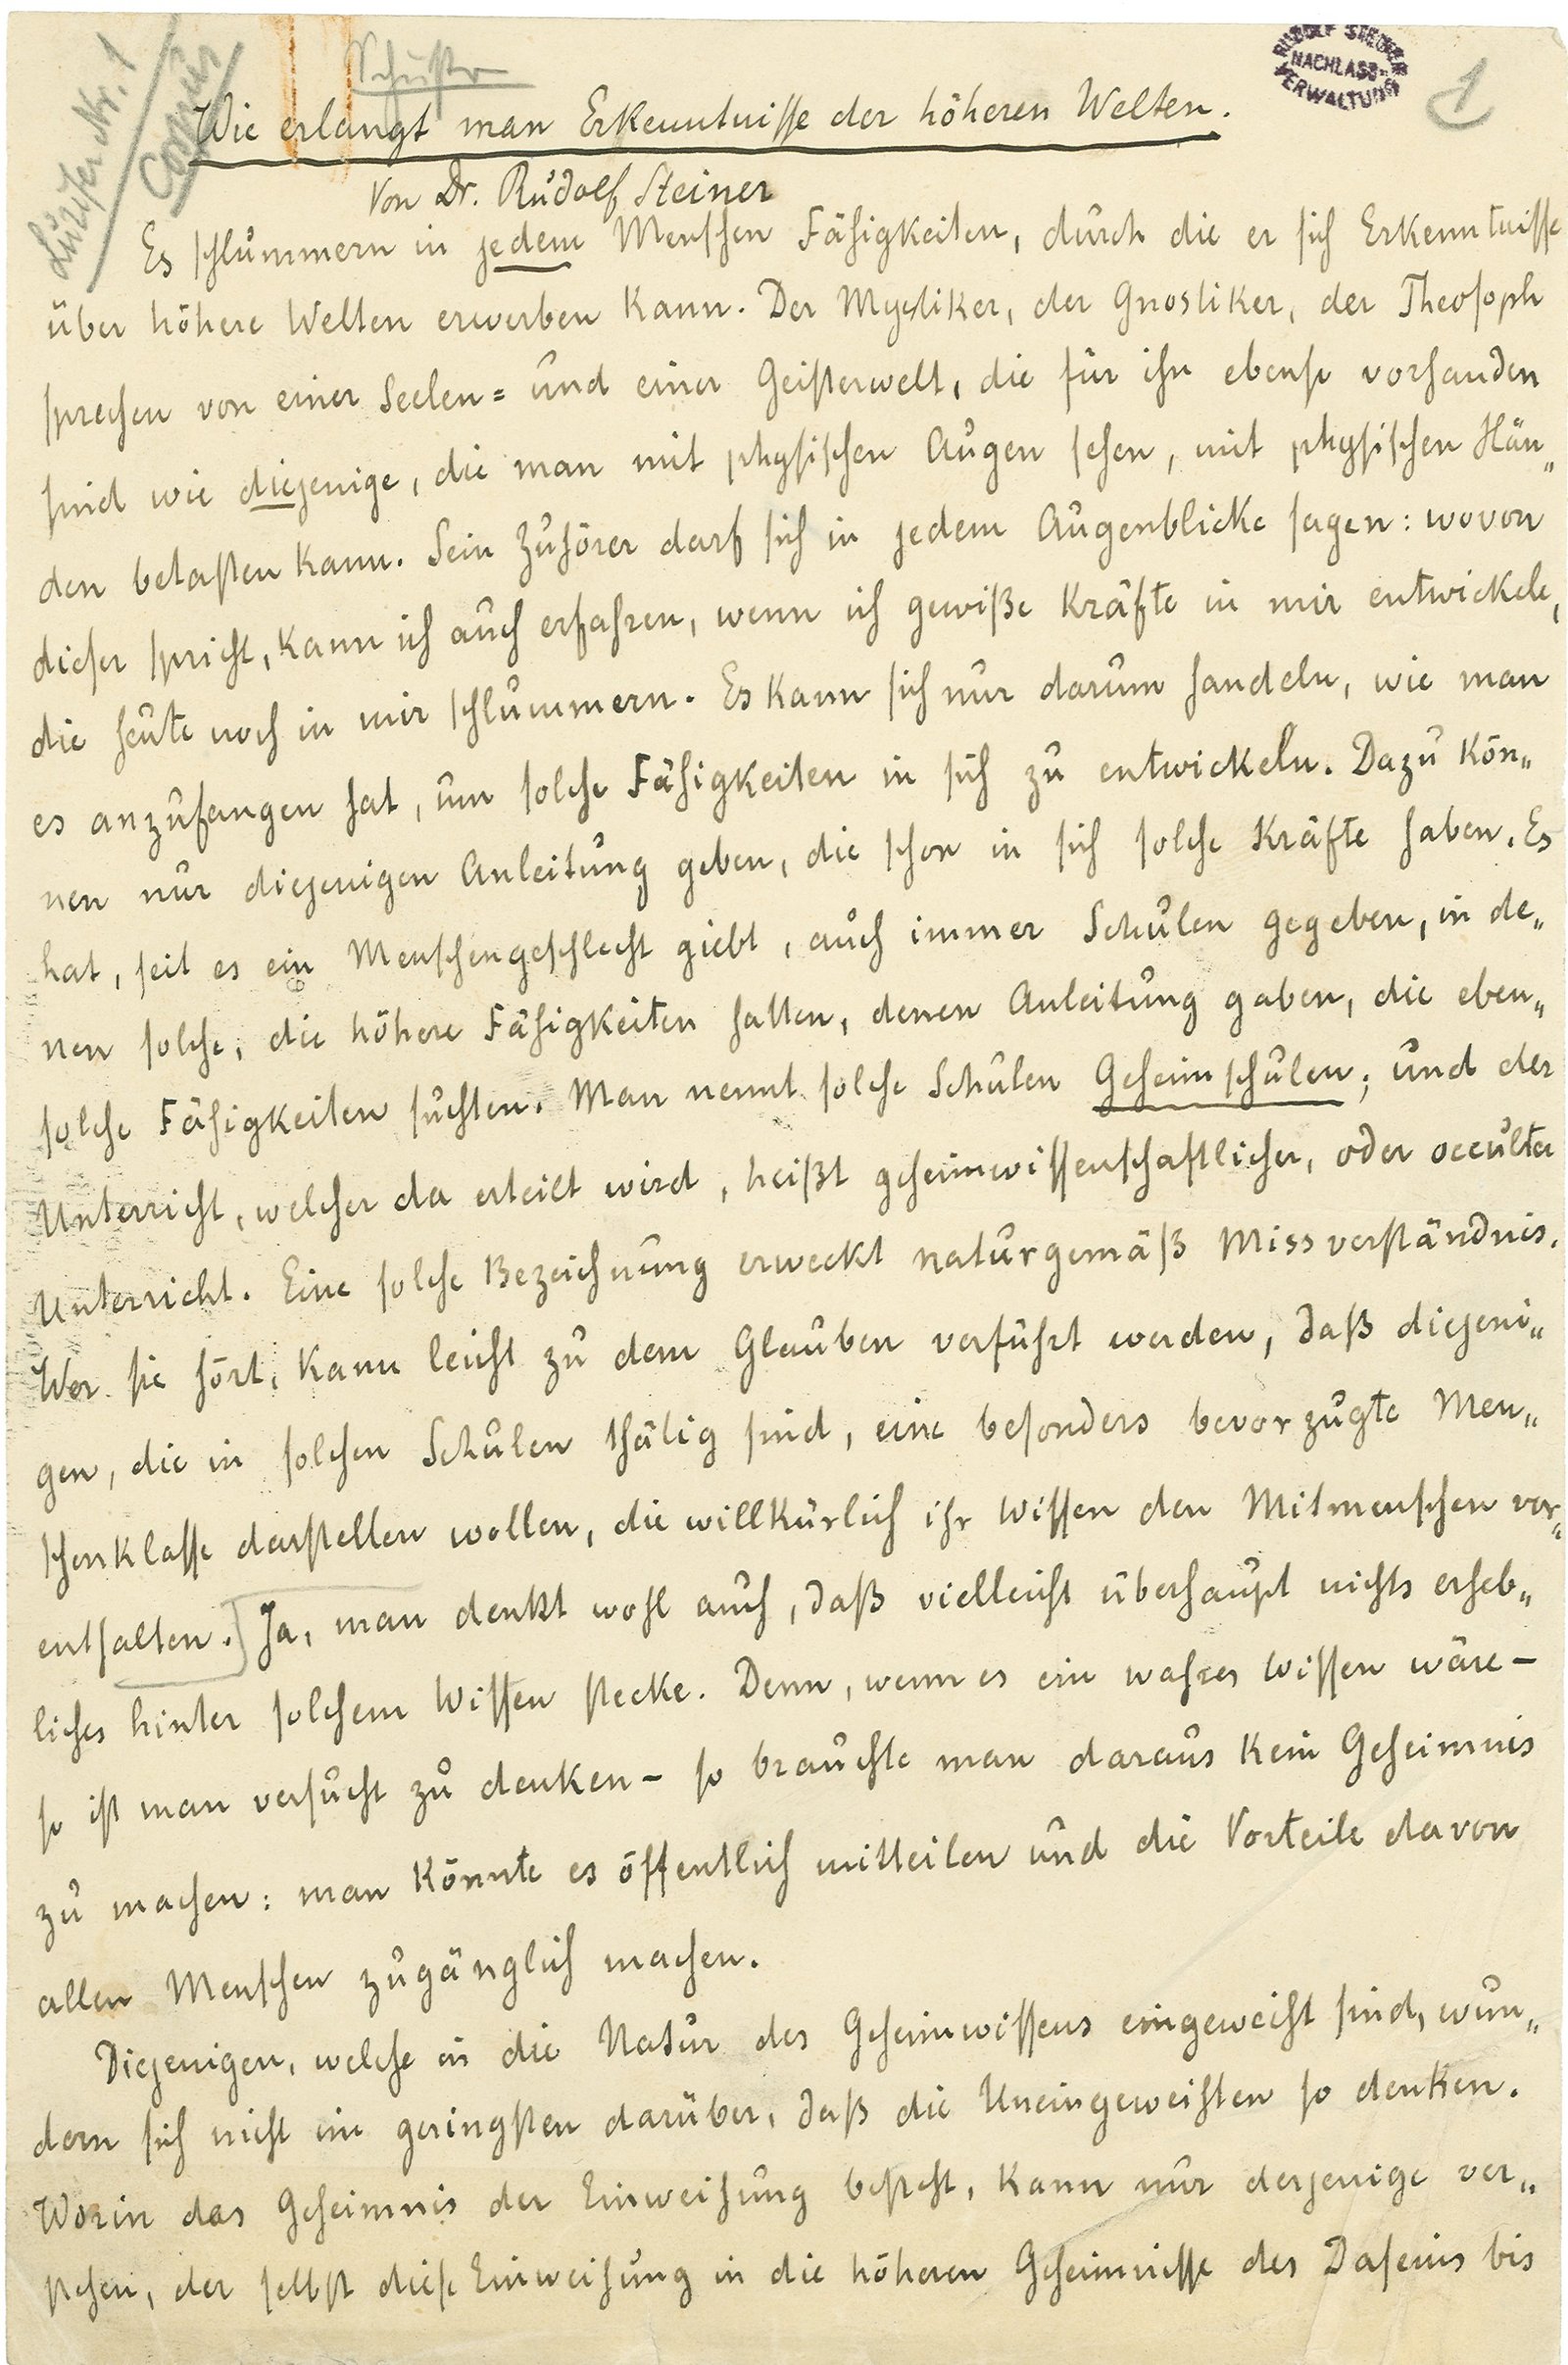 Lucifer Nr. 1
Corpus
Schuster
RUDOLF STEINER
NACHLASS-
VERWALTUNG
1
Wie erlangt man Erkenntnisse der höheren Welten.
Von Dr. Rudolf Steiner
Es schlummern in jedem Menschen Fähigkeiten, durch die er sich Erkenntnisse
über höhere Welten erwerben kann. Der Mystiker, der Gnostiker, der Theosoph
sprechen von einer Seelen= und einer Geisterwelt, die für ihn ebenso vorhanden
sind wie diejenige, die man mit physischen Augen sehen, mit physischen Hän„
den betasten kann. Sein Zuhörer darf sich in jedem Augenblicke sagen: wovon
dieser spricht, kann ich auch erfahren, wenn ich gewiße Kräfte in mir entwickele,
die heute noch in mir schlummern. Es kann sich nur darum handeln, wie man
es anzufangen hat, um solche Fähigkeiten in sich zu entwickeln. Dazu kön„
nen nur diejenigen Anleitung geben, die schon in sich solche Kräfte haben. Es
hat, seit es ein Menschengeschlecht giebt, auch immer Schulen gegeben, in de„
nen solche, die höhere Fähigkeiten hatten, denen Anleitung gaben, die eben„
solche Fähigkeiten suchten. Man nennt solche Schulen Geheimschulen; und der
Unterricht, welcher da erteilt wird, heißt geheimwissenschaftlicher, oder occulter
Unterricht. Eine solche Bezeichnung erweckt naturgemäß Missverständnis.
Wer sie hört, kann leicht zu dem Glauben verführt werden, daß diejeni„
gen, die in solchen Schulen thätig sind, eine besonders bevorzugte Men„
schenklasse darstellen wollen, die willkürlich ihr Wissen den Mitmenschen vor„
enthalten. Ja, man denkt wohl auch, daß vielleicht überhaupt nichts erheb„
liches hinter solchem Wissen stecke. Denn, wenn es ein wahres Wissen wäre –
so ist man versucht zu denken – so brauchte man daraus kein Geheimnis
zu machen: man könnte es öffentlich mitteilen und die Vorteile davon
allen Menschen zugänglich machen.
Diejenigen, welche in die Natur des Geheimwissens eingeweiht sind, wun„
dern sich nicht im geringsten darüber, daß die Uneingeweihten so denken.
Worin das Geheimnis der Einweihung besteht, kann nur derjenige ver„
stehen, der selbst diese Einweihung in die höheren Geheimnisse des Daseins bis